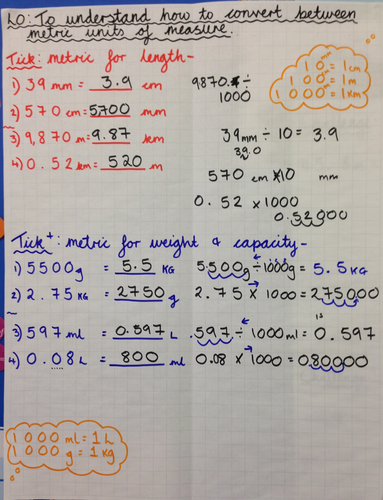 LO: To understand how to convert between
metric units of measure.
Tick: metric for length-
1) 39 mm = 3.9 cm
2) 570 cm = 5,700 mm
3) 9,870 m = 9.87 km
4) 0.52 km = 520 m
10 = 1cm
100 = 1m
1000 = 1km
9,870 ÷
1000
39mm ÷ 10 = 3.9
39.0
570 cm ×10 mm
0.52 × 1000
0.52000
Tick+: metric for weight & capacity-
1) 5500g = 5.5 KG
5,500g ÷ 1000g = 5.5KG
2) 2.75 KG = 2750 g
2.75 × 1000 = 275000
3) 597 ml = 0.597 L
.597 ÷ 1000ml = 0.597
4) 0.08 L = 800 ml
0.08 × 1000 = 080000
1000 ml = 1L
1000 g = 1kg